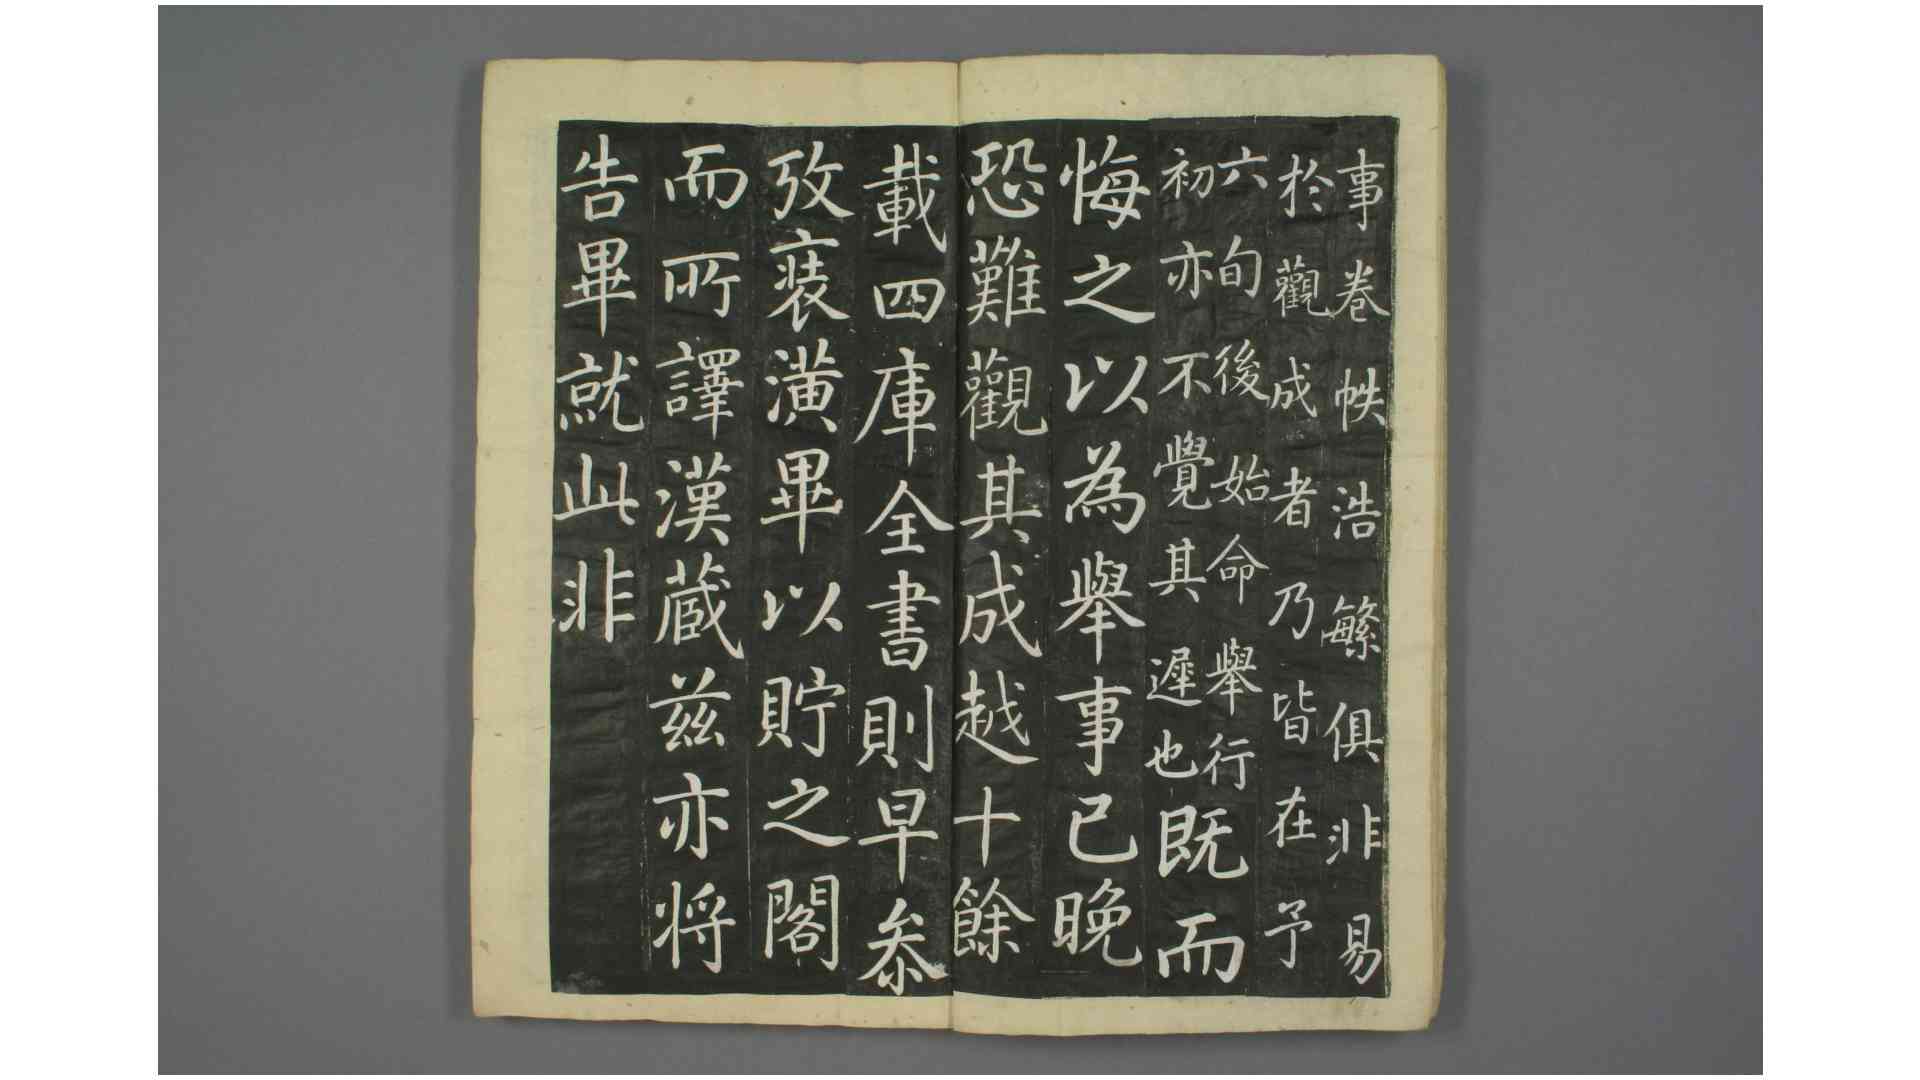 事卷帙浩繁俱非易
於觀成者乃皆在予
六旬後始命舉行
初亦不覺其遲也既而
悔之以為舉事已晚
恐難觀其成越十餘
載四庫全書則早叅
攷裝潢畢以貯之閣
而所譯漢蔵茲亦将
告畢就此非